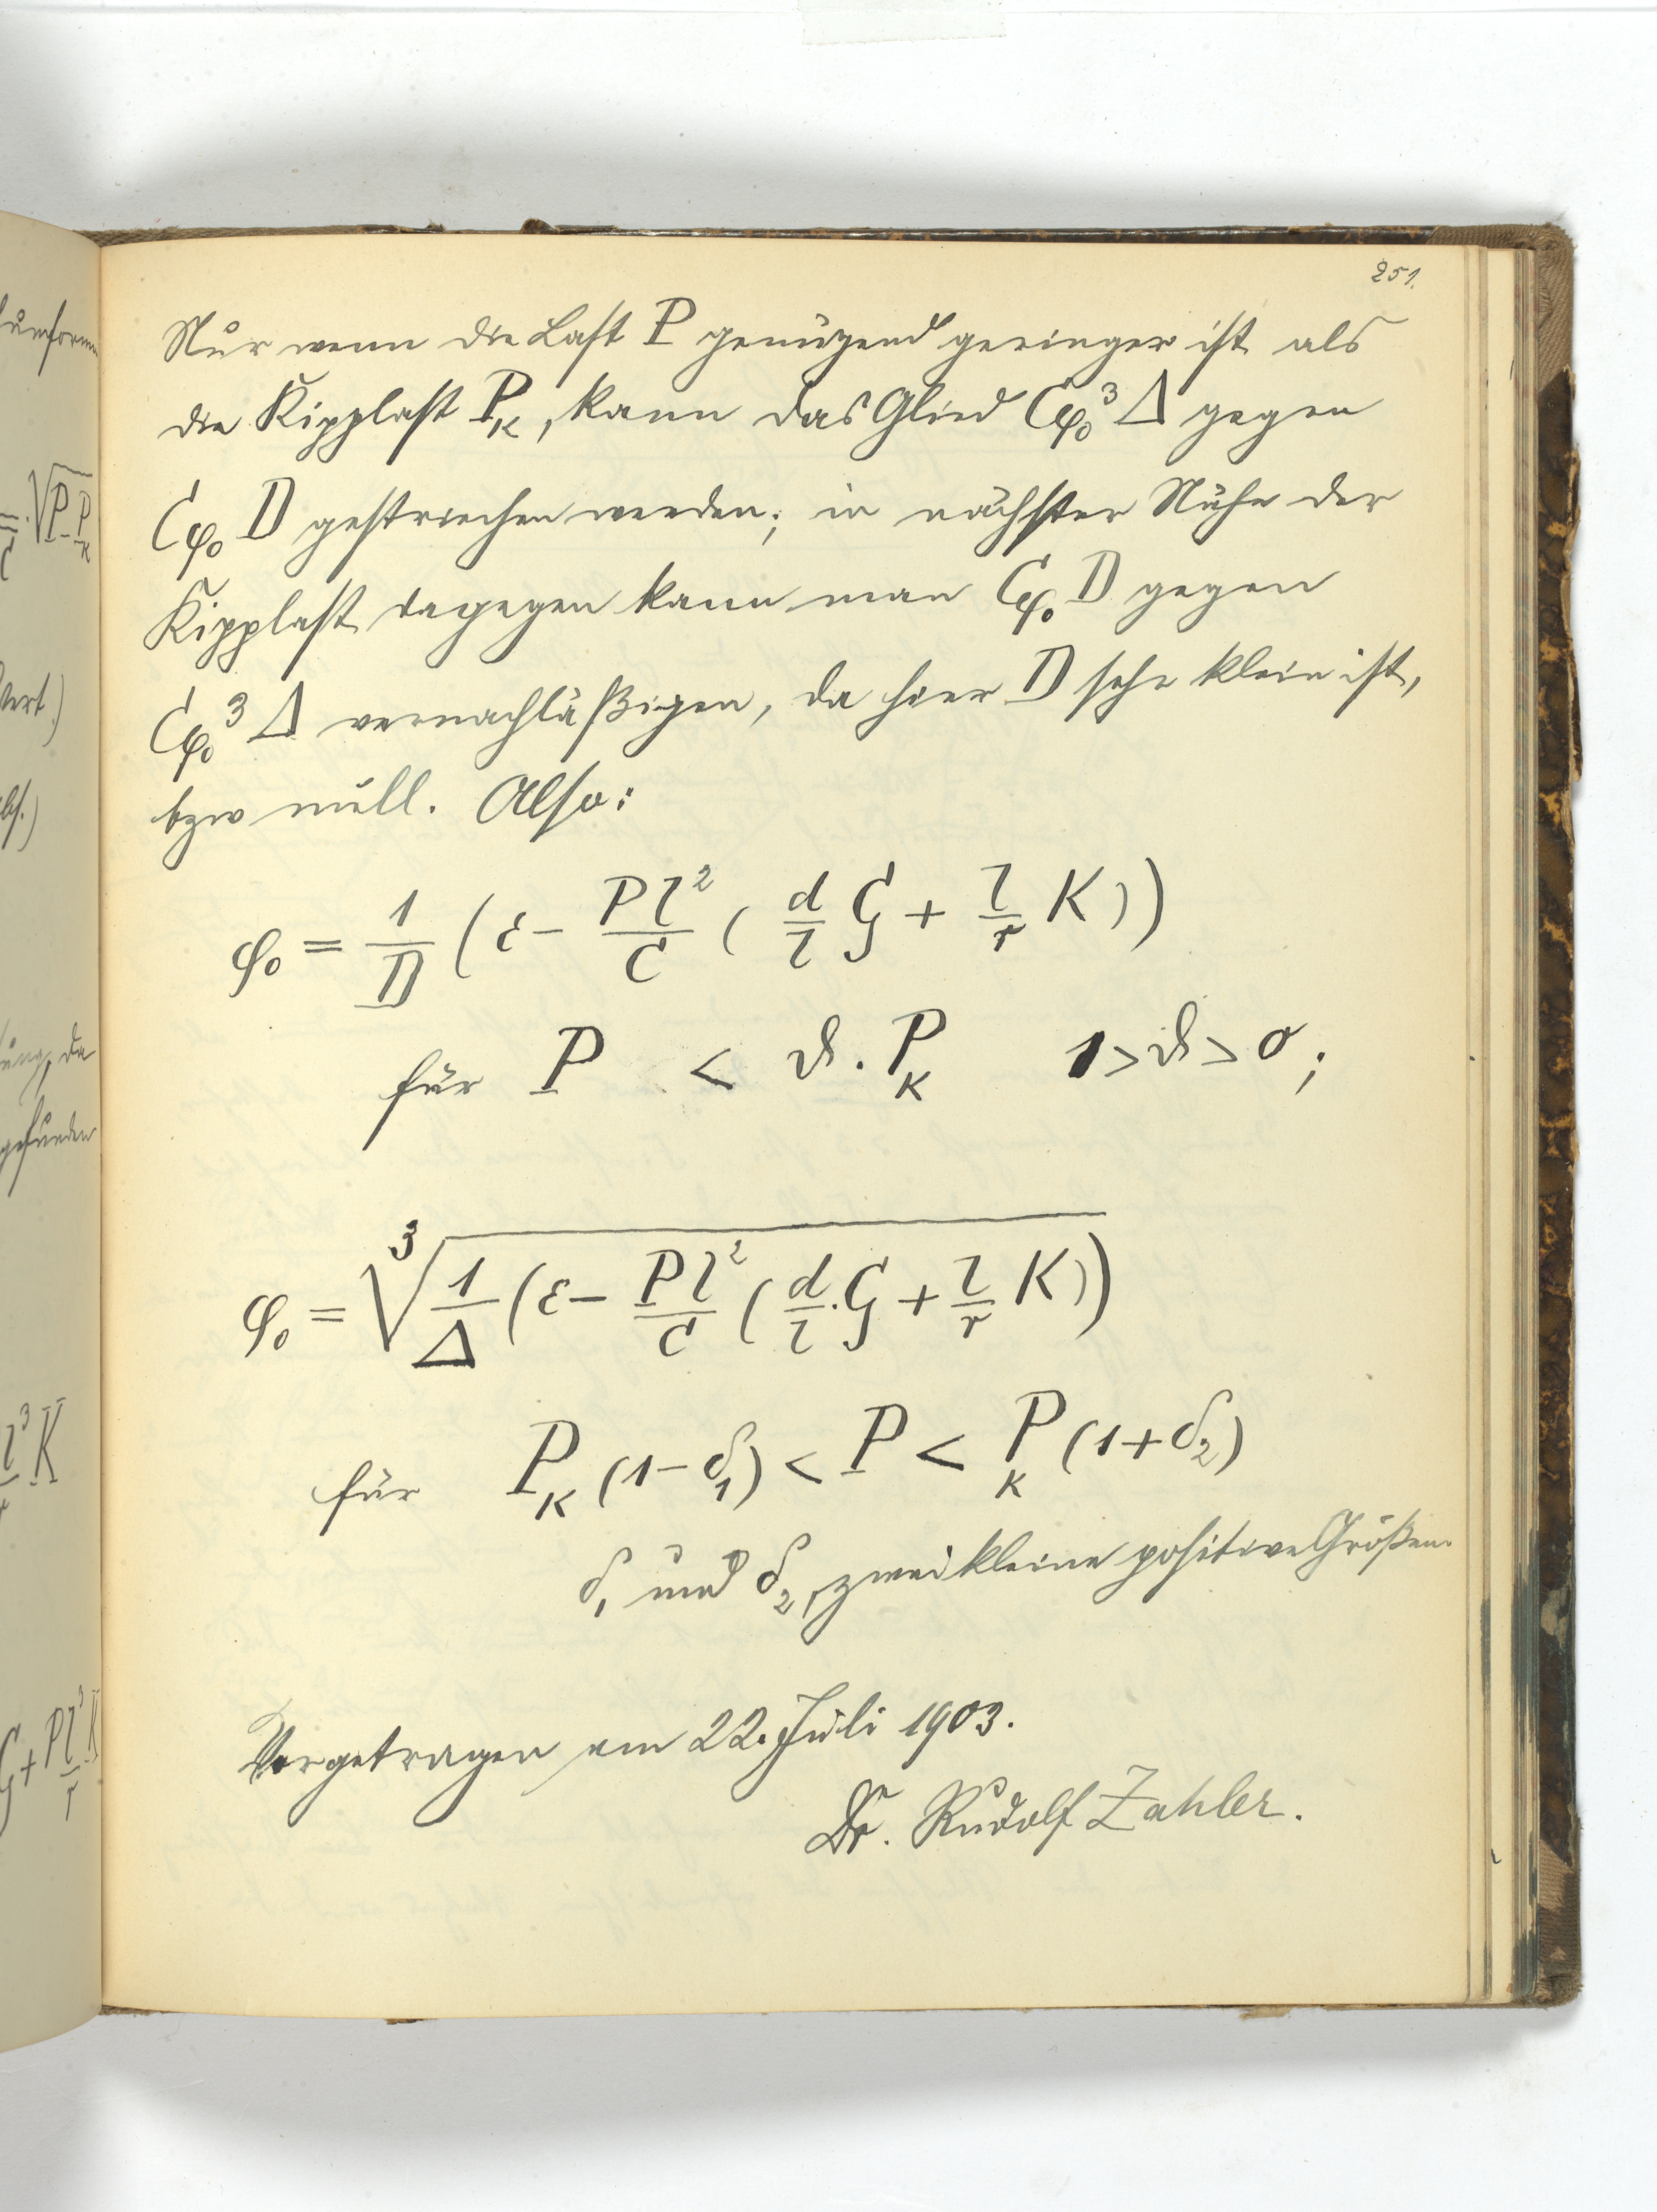 251.
Nur wenn die Last P genügend geringer ist als
die Kipplast P_K, kann das Glied Cφ₀³Δ gegen
Cφ₀ D gestrichen werden; in nächster Nähe der
Kipplast dagegen kann man Cφ₀ D gegen
Cφ₀³ Δ vernachläßigen, da hier D sehr klein ist,
bzw null. Also:
φ₀ = 1/D (ε − Pl²/C (d/l G + l/r K))
für P < ϑ · P_K 1 > ϑ > 0;
φ₀ = ∛(1/Δ (ε − Pl²/C (d/l · G + l/r K))
für P_K (1−δ₁) < P < P_K (1+δ₂)
δ₁ und δ₂, zwei kleine positive Größen.
Vorgetragen am 22. Juli 1903.
Dr. Rudolf Zahler.